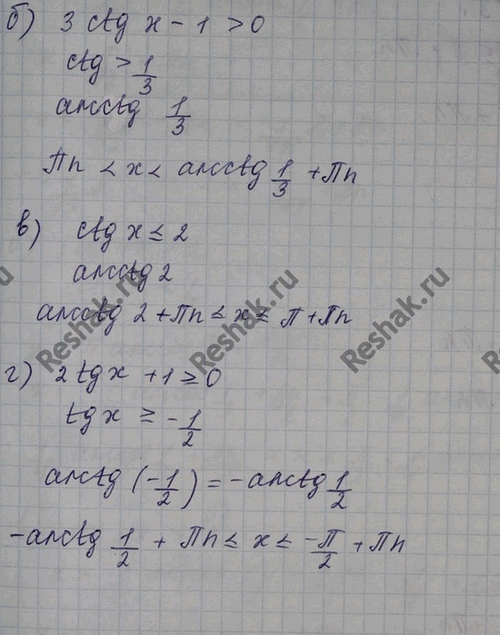 б) 3 ctg x - 1 > 0
ctg > 1/3
arcctg 1/3
Пn < x < arcctg 1/3 + Пn
в) ctg x ≤ 2
arcctg 2
arcctg 2 + Пn ≤ x ≤ П + Пn
г) 2 tg x + 1 ≥ 0
tg x ≥ - 1/2
arctg (- 1/2) = - arctg 1/2
- arctg 1/2 + Пn ≤ x ≤ -П/2 + Пn
Reshak.ru
Reshak.ru
Reshak.ru